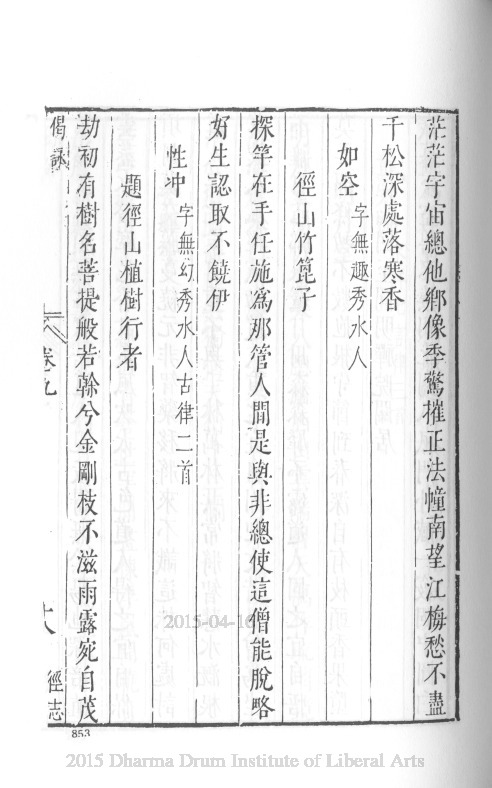 茫茫宇宙總他鄉像季驚摧正法幢南望江梅愁不盡
千松深處落寒香
如空字無趣秀水人
徑山竹篦子
探竿在手任施爲那管人間是與非總使這僧能脫略
好生認取不饒伊
性冲字無幻秀水人古律二首
題徑山植樹行者
劫初有樹名菩提般若幹兮金剛枝不滋雨露宛自茂
偈詠 卷九 十八 徑志
853
2015-04-16
2015 Dharma Drum Institute of Liberal Arts